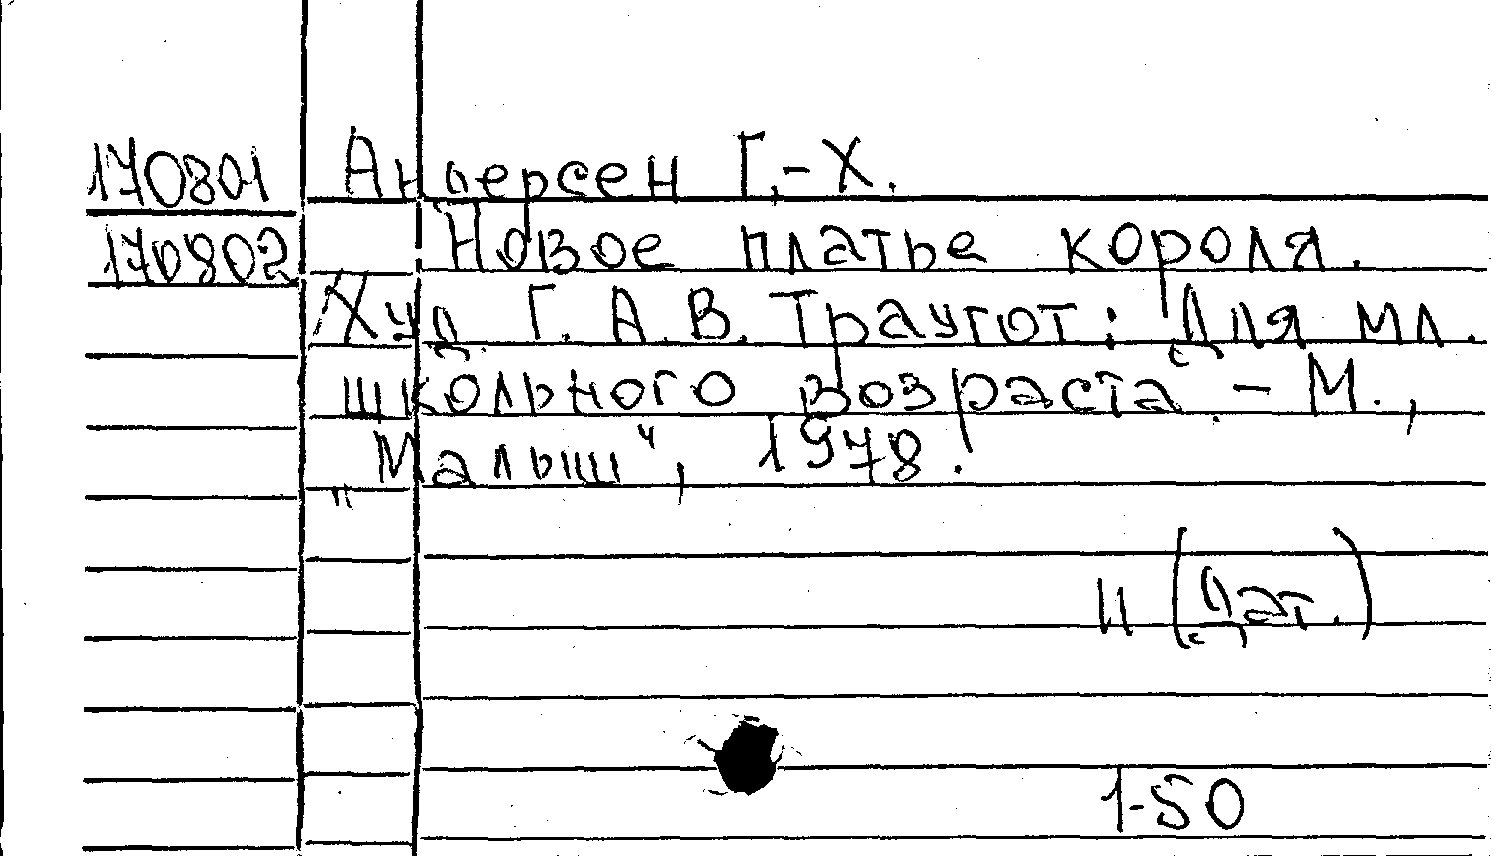 170801 Андерсен Г.-Х.
170802 Новое платье короля.
Худ. Г. А. В. Траугот: Для мл.
школьного возраста. - М.,
„Малыш“, 1978.
И (Дат.)
1-50